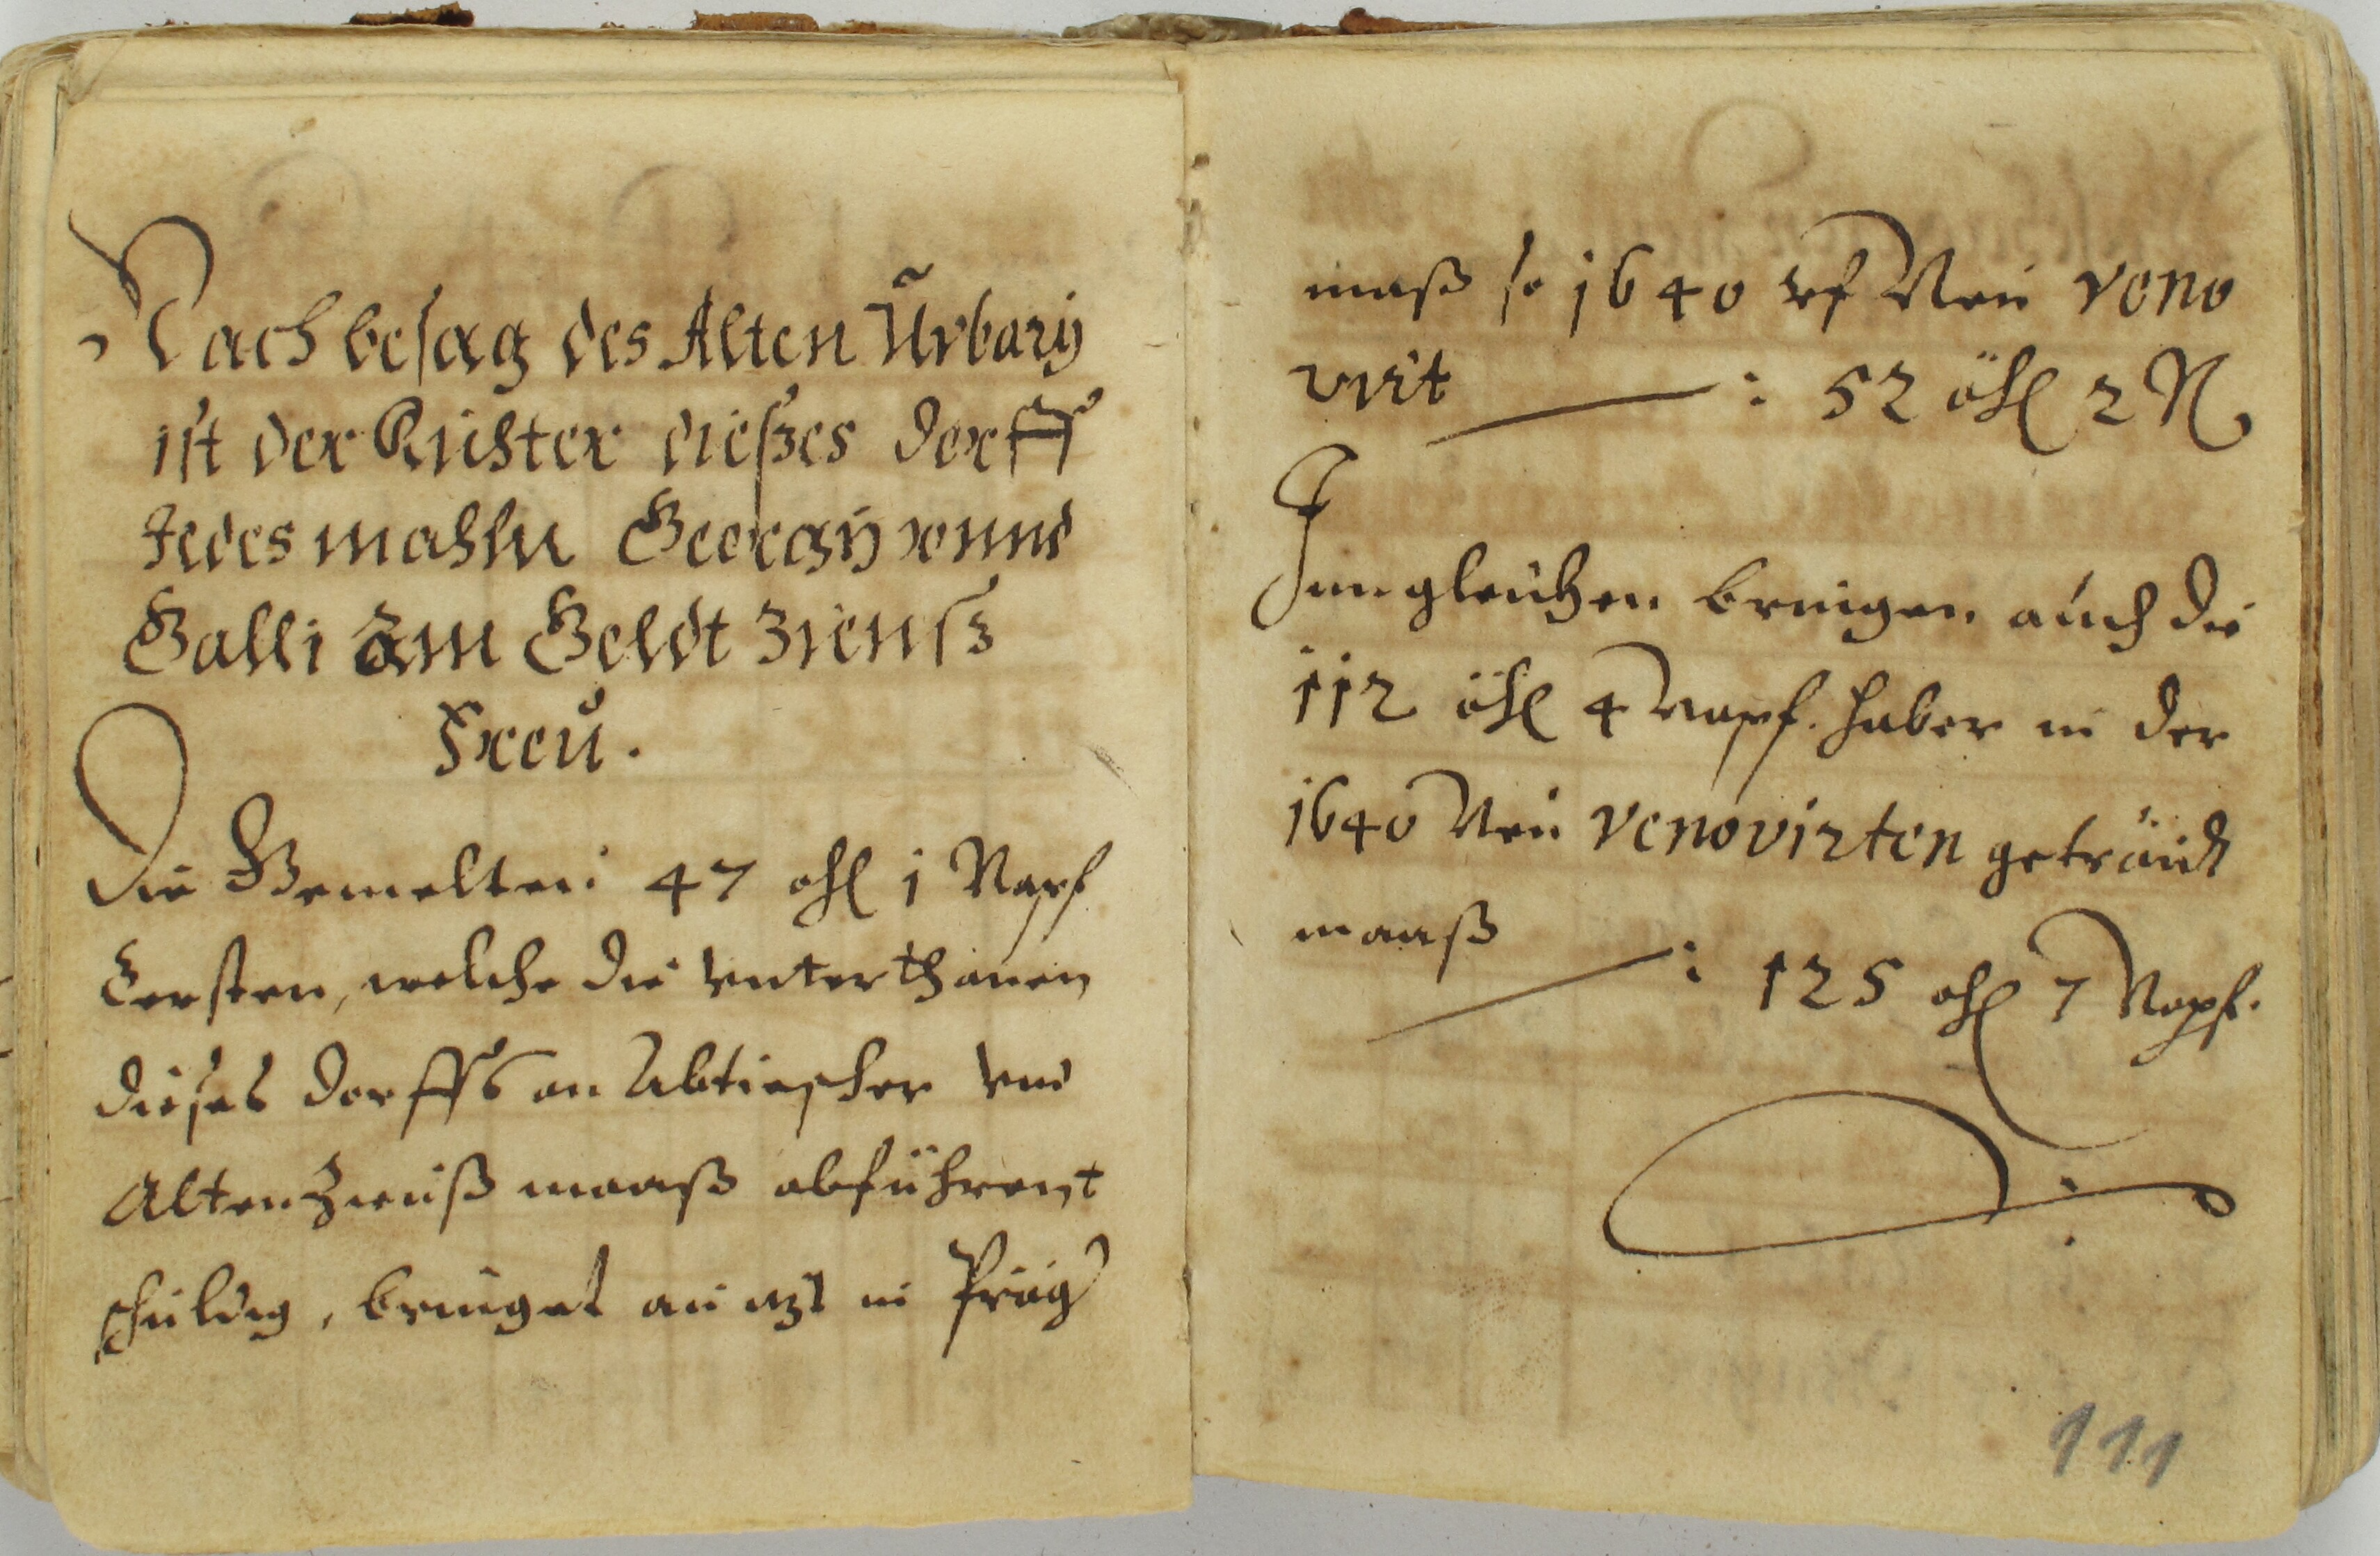 Nach besag des Alten Ŭrbarÿ
ist der Richter dießes dorffs
Jedes mahln Georgÿ vnnd
Galli am Geldt Zienß
Freÿ.
Die Gemelten 47 ohl 1 Napf
Gersten, welche die vnterthanen
dieses dorffs an Abtiescher vnd
Alten Zienß maaß abführent
schuldig, bringet an izt in Präg
maß so 1640 vf Neu reno
virt : 52 öhl 2 N
Inngleichen bringen auch die
112 öhl 4 napf. haber in der
1640 Neu renovirten geträidt
maaß : 125 ohl 7 Napf.
111